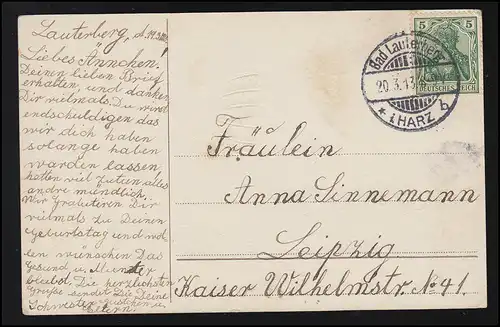 Lauterberg, d.
Liebes Annchen.
Deinen lieben Brief
erhalten, und danken
Dir vielmals, Du wirst
endschuldigen das
wir dich haben
solange haben
warden lassen
hatten viel zutun alles
andre mündlich.
Wir Gratulieren Dir
vielmals zu Deinen
Geburtstag und wol-
len wünschen Das
Gesund u. Munter
bleibst. Die herzlichsten
Grüße sendet Dir Deine
Schwester u.
Eltern.
5 5
DEUTSCHES REICH
Bad Lauterberg
20.3.13
* i. HARZ b
Fräulein
Anna Sinnemann
Leipzig
Kaiser Wilhelmstr. No 41.